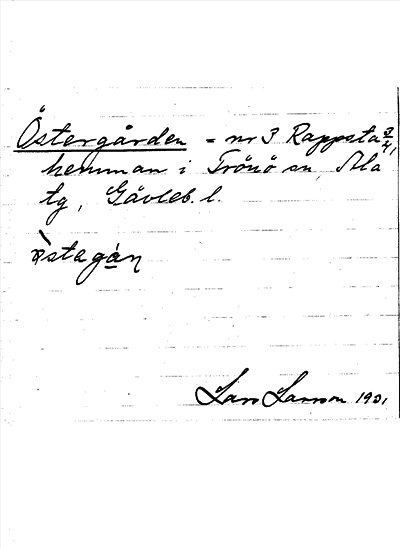 Östergården = nr 3 Rappsta 3/4,
hemman i Trönö sn, Ala
tg, Gävleb. l.
östagá̱n
Lars Larsson 1901